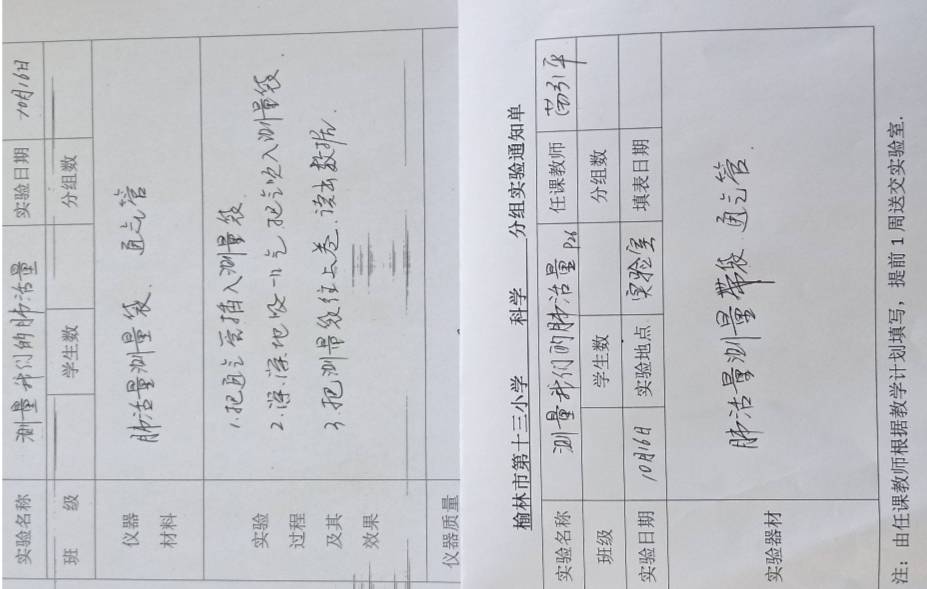 实验名称 测量我们的肺活量 实验日期 10月16日
班级 学生数 分组数
仪器材料 肺活量测量袋、通气管
实验过程及其效果
1.把通气管插入测量袋
2.深深地吸一口气,把气吹入测量袋.
3.把测量袋往上卷.读出数据.
仪器质量
榆林市第十三小学 科学 分组实验通知单
实验名称 测量我们的肺活量 P26 任课教师
班级 学生数 分组数
实验日期 10月16日 实验地点 实验室 填表日期
实验器材 肺活量测量带袋、通气管.
注:由任课教师根据教学计划填写,提前1周送交实验室.